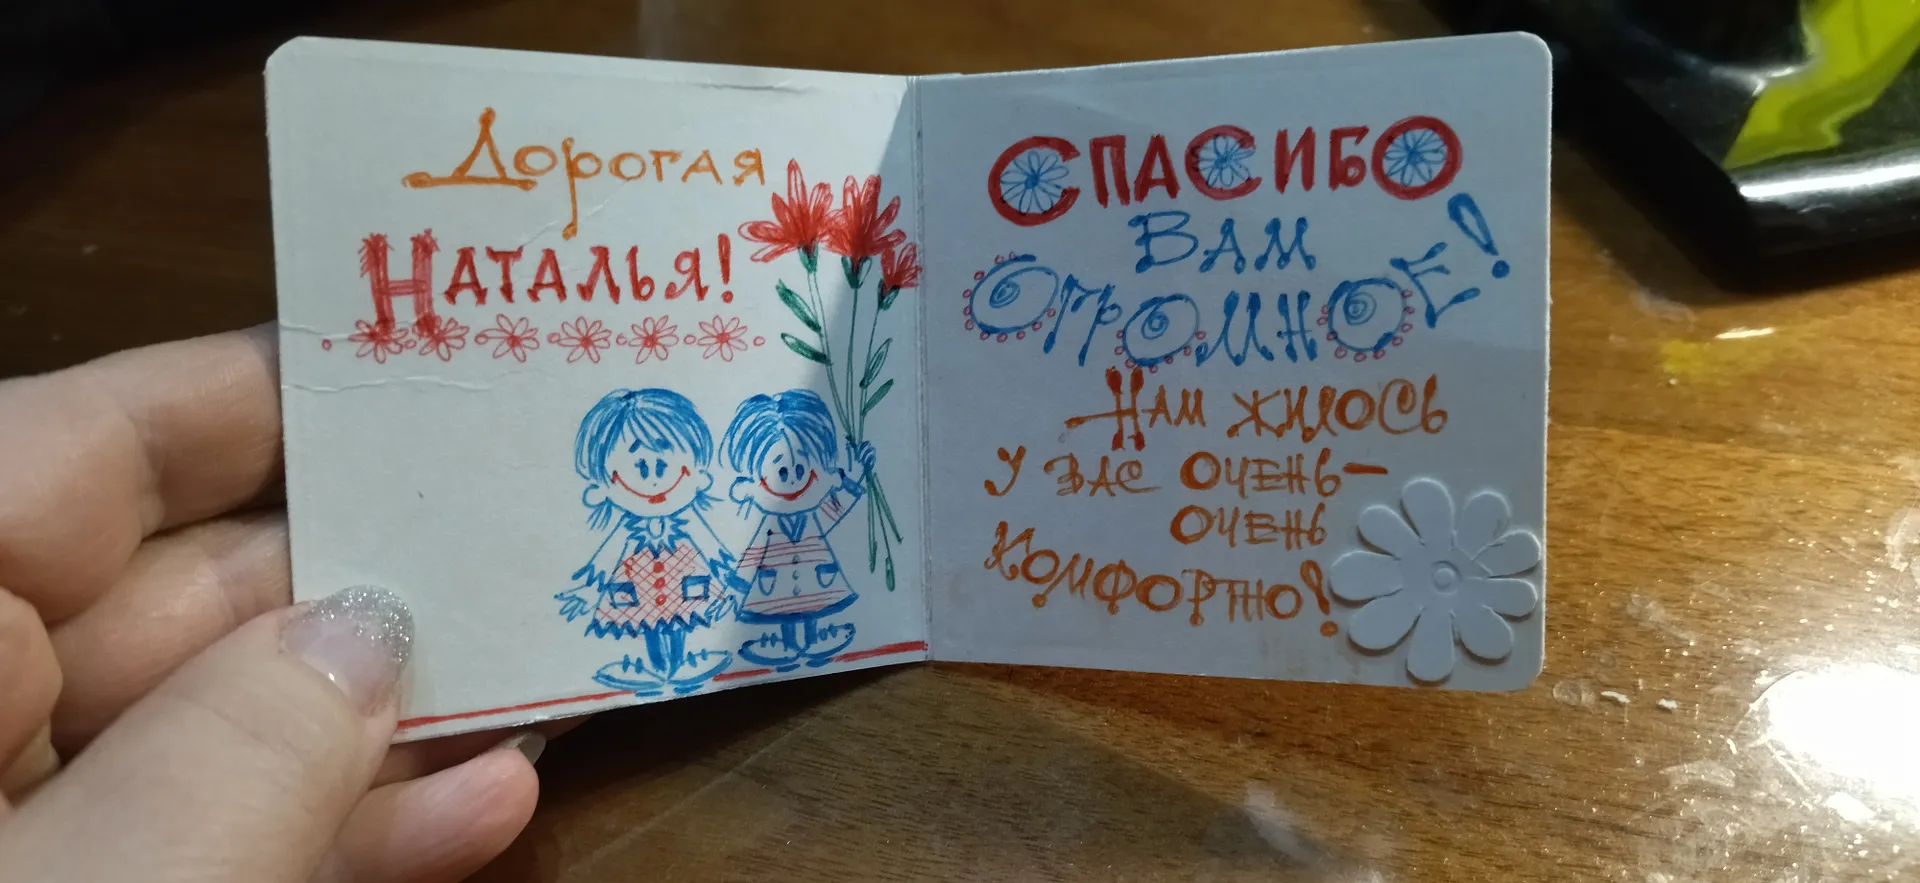 Дорогая
Наталья!
Спасибо
Вам
Огромное!
Нам жилось
у вас очень-
очень
комфортно!